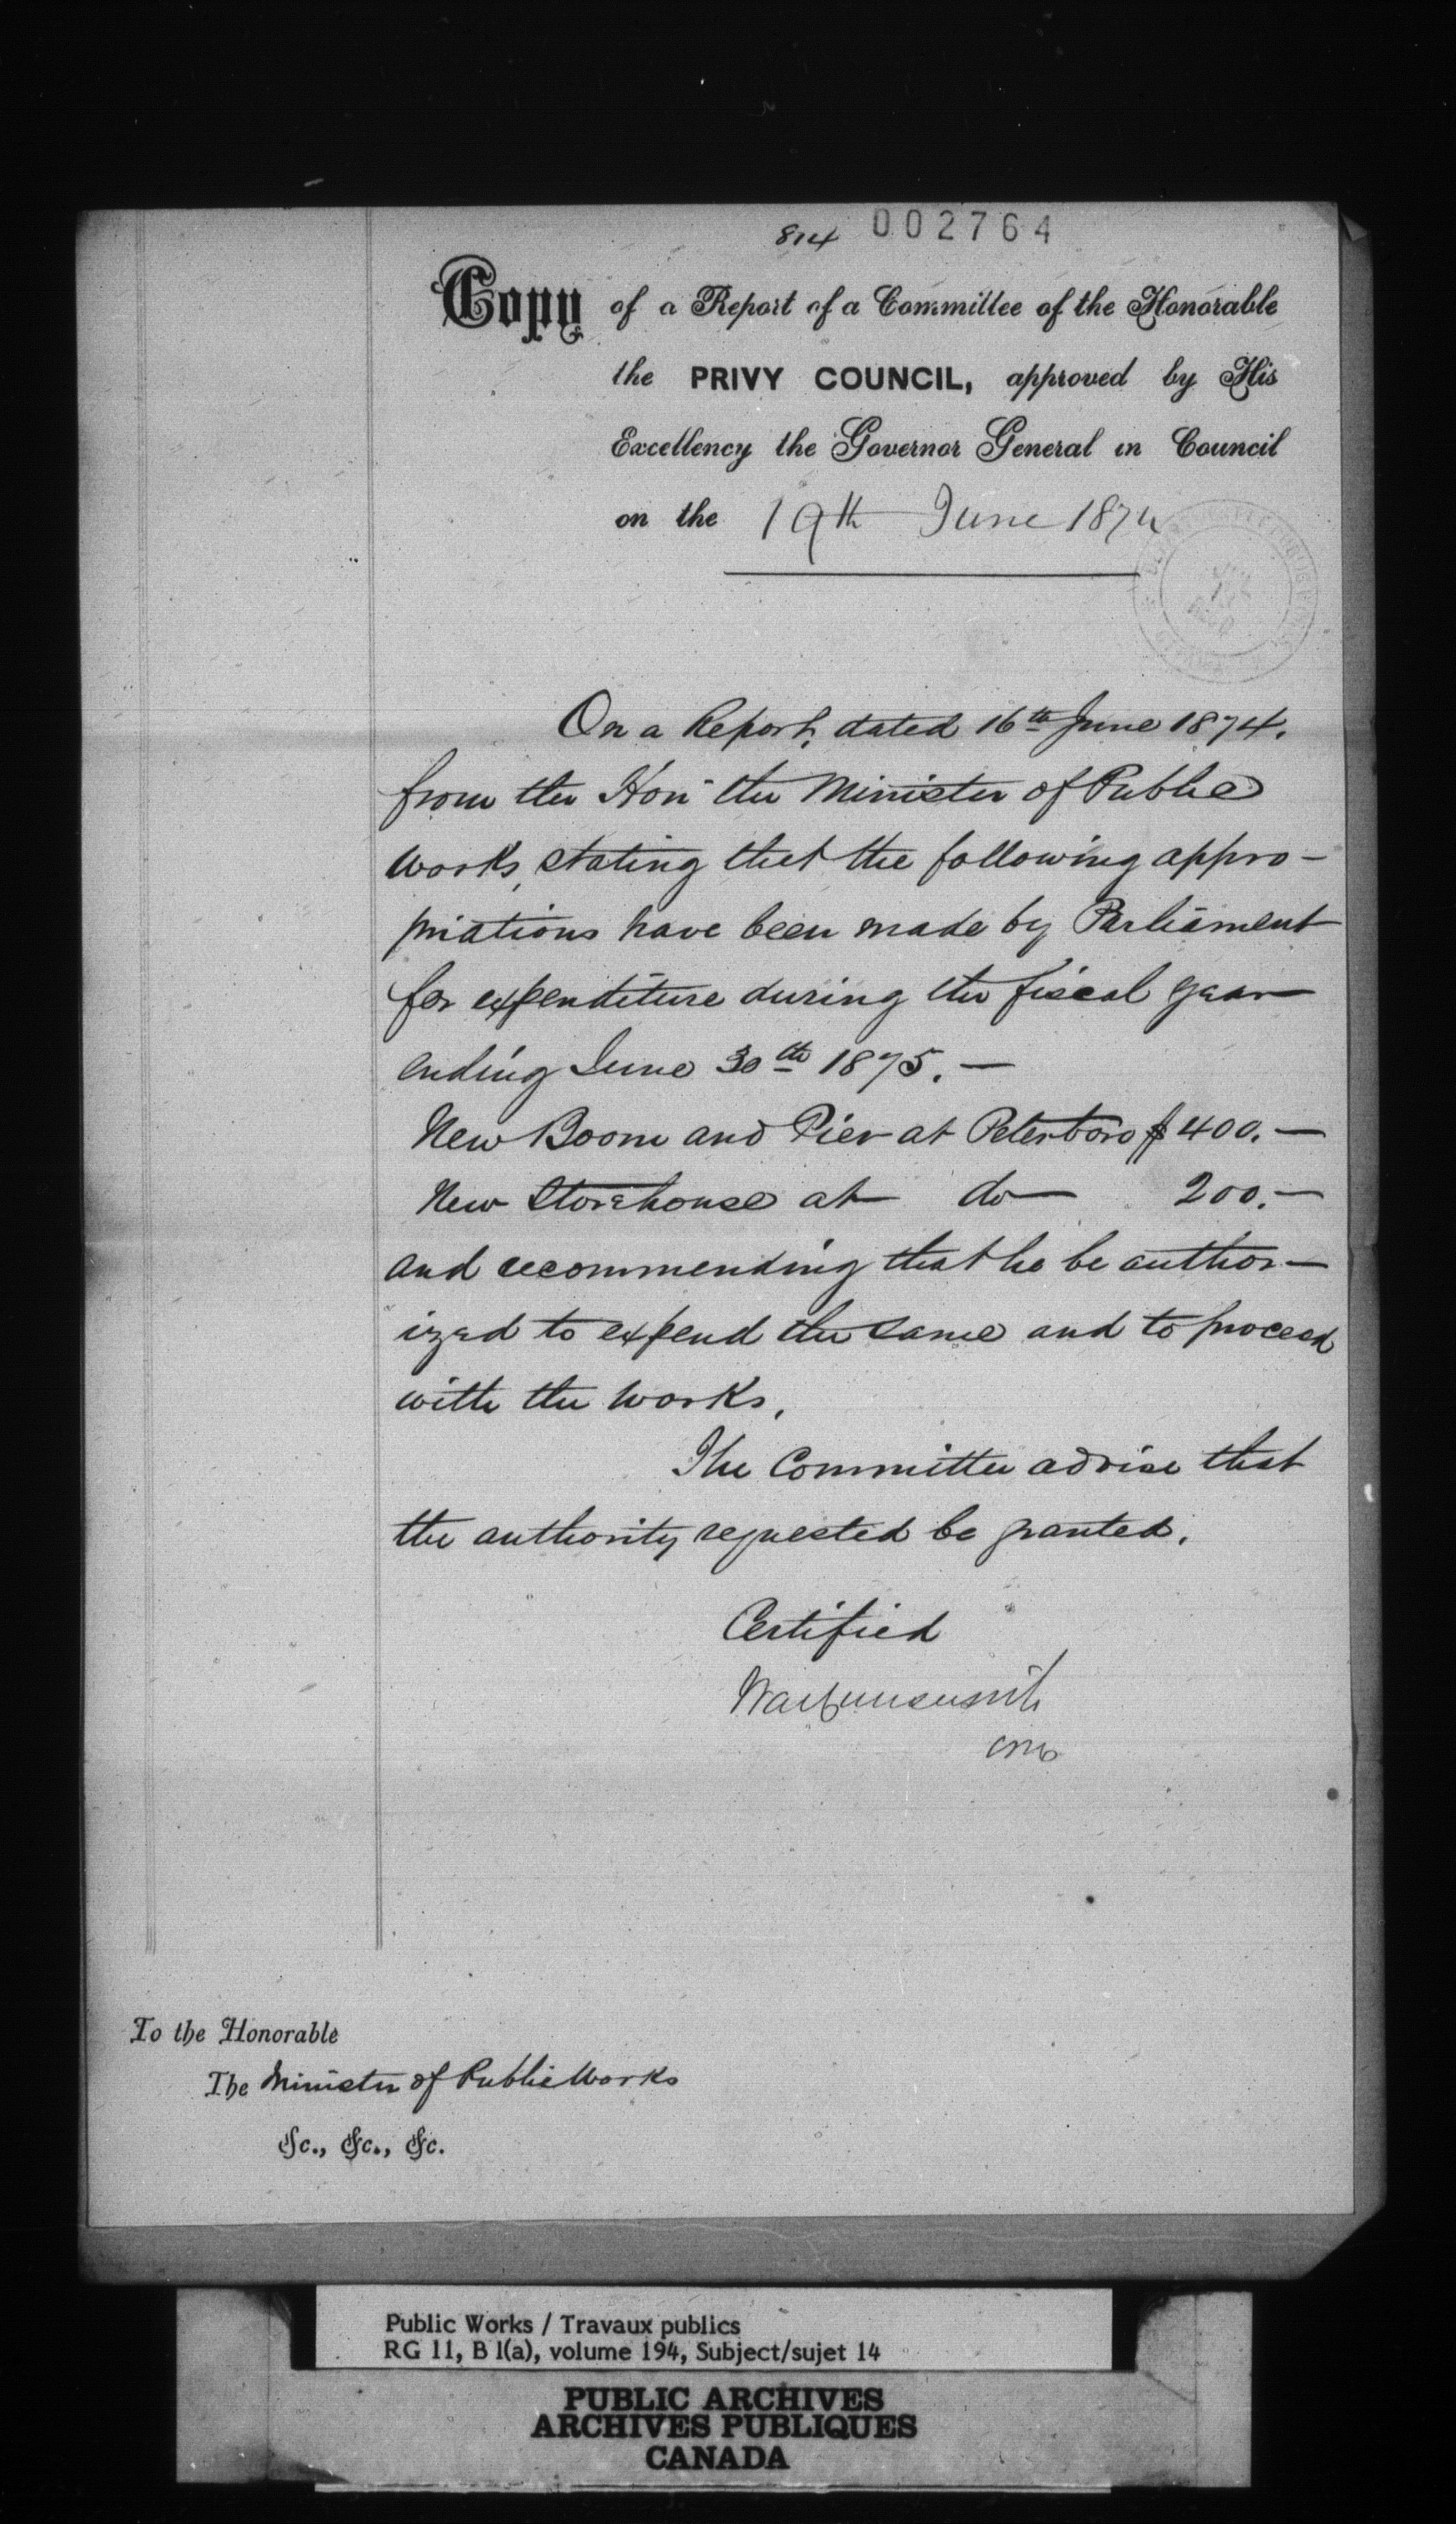 814 002764
Copy of a Report of a Committee of the Honorable
the PRIVY COUNCIL, approved by His
Excellency the Governor General in Council
on the 19th June 1874
On a Report, dated 16th June 1874.
from the Hon the Minister of Public
Works, stating that the following appro-
priations have been made by Parliament
for expenditure during the fiscal year
ending June 30th 1875. —
New Boom and Pier at Peterboro $400. —
New Storehouse at do 200. —
and recommending that he be author-
ized to expend the same and to proceed
with the works.
The Committee advise that
the authority requested be granted.
Certified
To the Honorable
The Minister of Public Works
&c., &c., &c.
Public Works / Travaux publics
RG 11, B 1(a), volume 194, Subject/sujet 14
PUBLIC ARCHIVES
ARCHIVES PUBLIQUES
CANADA